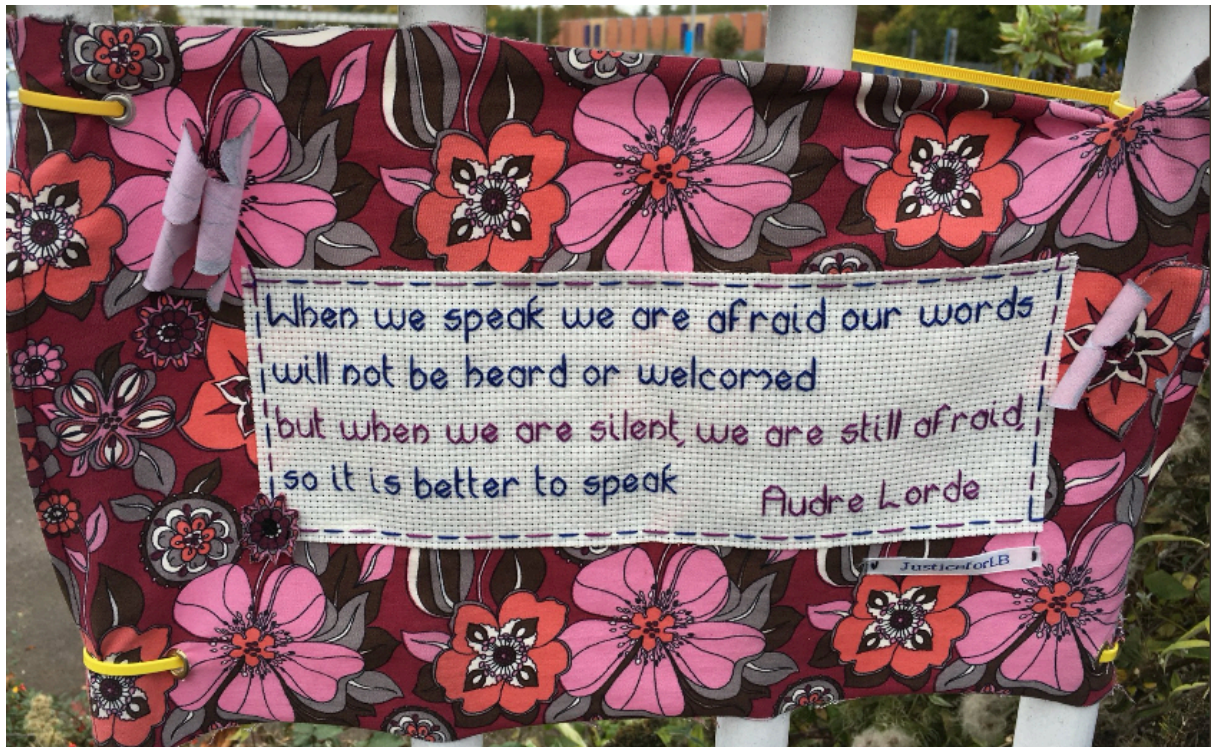 When we speak we are afraid our words
will not be heard or welcomed
but when we are silent, we are still afraid,
so it is better to speak
Audre Lorde
JusticeforLB